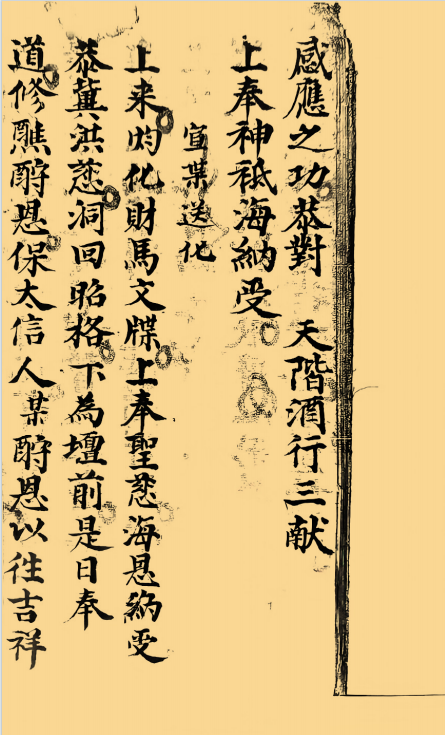 感應之功恭對 天階酒行三献
上奉神祇海納受
宣枼送化
上来灼化財馬文牒上奉聖慈海恩納受
恭冀洪慈洞回昭格下為壇前是日奉
道修醮酧恩保太信人某酧恩以徃吉祥